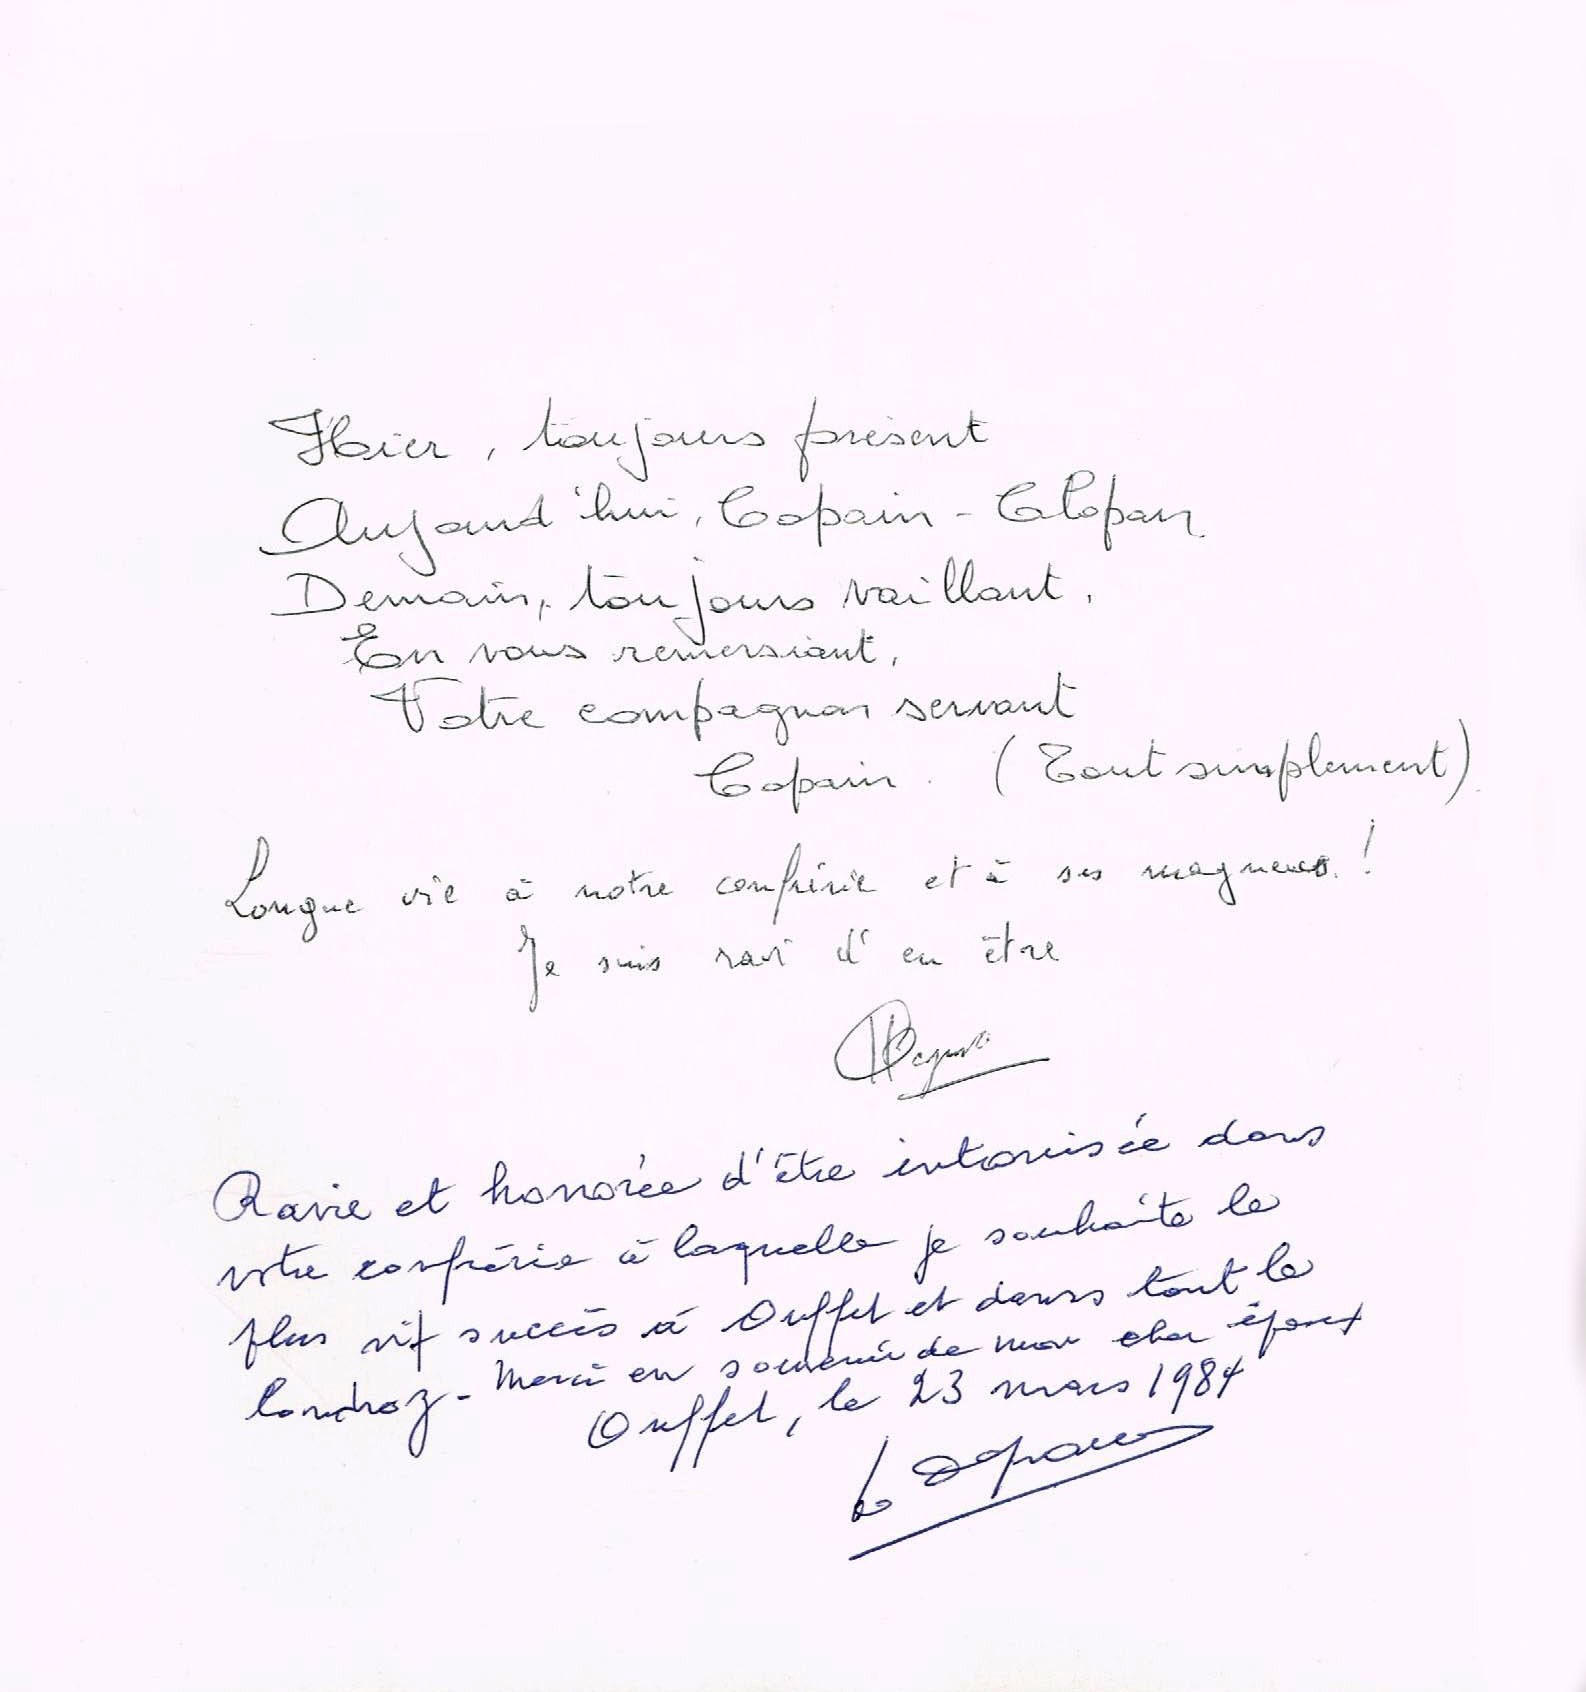 Hier, toujours présent
Aujourd'hui, Copain - Clopan
Demain, toujours vaillant.
En vous remersiant,
Votre compagnon servant
Copain. (Tout simplement)
Longue vie à notre confrérie et à ses magneus !
Je suis ravi d'en être
Ravie et honorée d'être intronisée dans
votre confrérie à laquelle je souhaite le
plus vif succès à Ouffet et dans tout le
Condroz - Merci en souvenir de mon cher époux
Ouffet, le 23 mars 1984